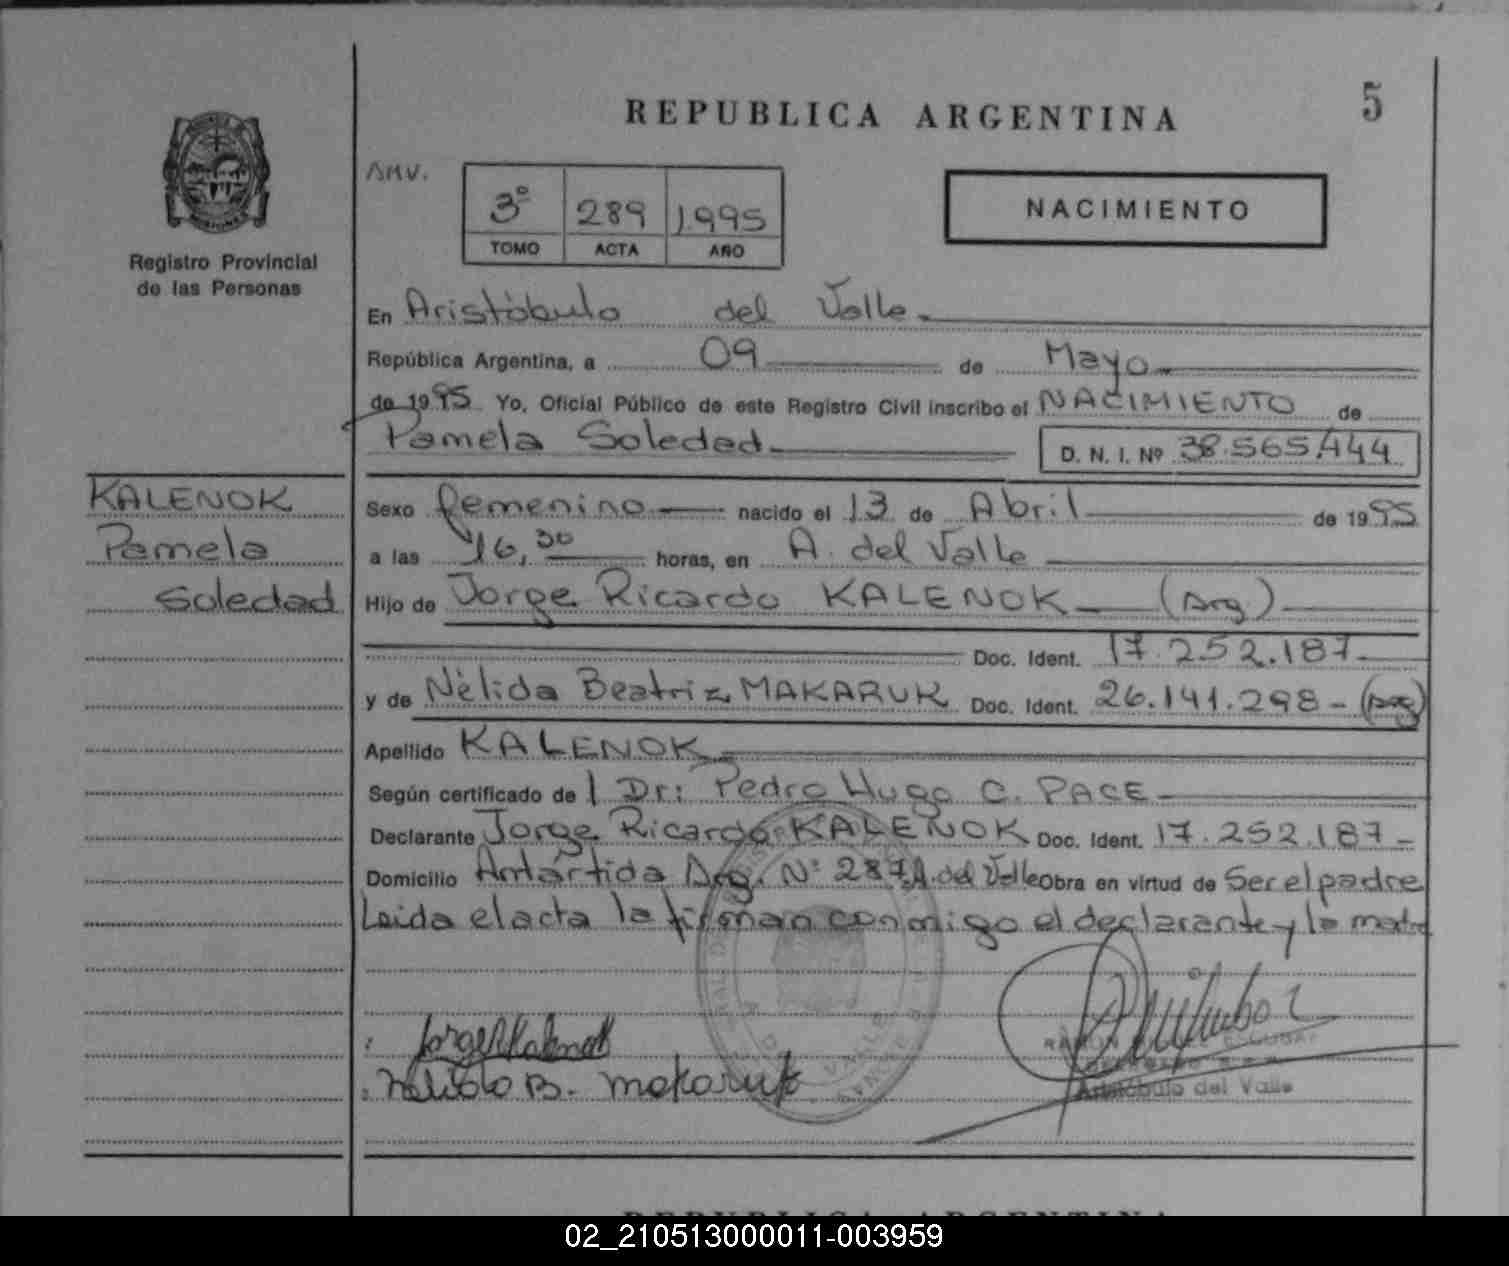 REPUBLICA ARGENTINA
5
AMV.
3º 289 1.995
TOMO ACTA AÑO
NACIMIENTO
MISIONES
Registro Provincial
de las Personas
En Aristóbulo del Valle.
República Argentina, a 09 de Mayo
de 1995 Yo, Oficial Público de este Registro Civil inscribo el NACIMIENTO de
Pamela Soledad
D. N. I. Nº 38.565.444
KALENOK
Pamela
Soledad
Sexo femenino nacido el 13 de Abril de 1995
a las 16,30 horas, en A. del Valle
Hijo de Jorge Ricardo KALENOK (Arg)
Doc. Ident. 17.252.187
y de Nélida Beatriz MAKARUK Doc. Ident. 26.141.298 - (Arg)
Apellido KALENOK
Según certificado de Dr: Pedro Hugo C. PACE
Declarante Jorge Ricardo KALENOK Doc. Ident. 17.252.187 -
Domicilio Antártida Arg. Nº 287 A. del Valle Obra en virtud de Ser el padre
Leida el acta la firman conmigo el declarante y la madre
Jorge R Kalenok
Nelida B. Makaruk
VALLE
ESCOBAR
Aristóbulo del Valle
REPUBLICA ARGENTINA
02_210513000011-003959